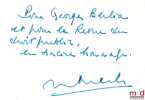 Pour Georges Berlia
et pour la Revue du
droit public,
en sincère hommage.